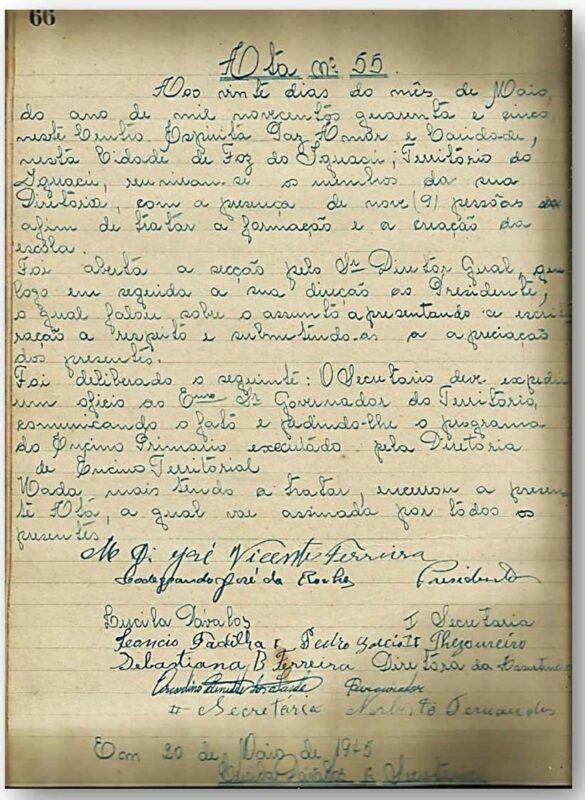 66
Ata nº 55.
Aos vinte dias do mês de Maio,
do ano de mil novecentos quarenta e cinco,
neste Centro Espirita Paz Amôr e Caridade,
nesta Cidade de Foz do Iguaçú; Território do
Iguaçú, reuniram-se os membros da sua
Diretória, com a presença de nove (9) pessôas
afim de tratar a formação e a creação da
escóla.
Foi aberta a secção pelo Snr Diretôr Gual, que
logo em seguida a sua direção ao Presidente,
o qual falou sobre o assunto apresentando a escri
ração a respeito e submetendo-as a apreciação
dos presentes.
Foi deliberado o seguinte: O Secretario deve expedir
um oficio ao Exmo Snr Governador do Territorio,
comunicando o fato e pedindo-lhe o programa
do Encino Primario executado pela Diretoria
de Encino Territorial
Nada, mais tendo a tratar, encerrou a presen
te Ata, a qual vae assinada por todos os
presentes
José Vicente Ferreira
José da Rocha Presidente
Lucila Dávalos I Secretaria
Leoncio Padilha Pedro Thezoureiro
Sebastiana B Ferreira Diretóra da
Procurador
II Secretária Fernandes
Em 20 de Maio de 1945
Lucila Dávalos